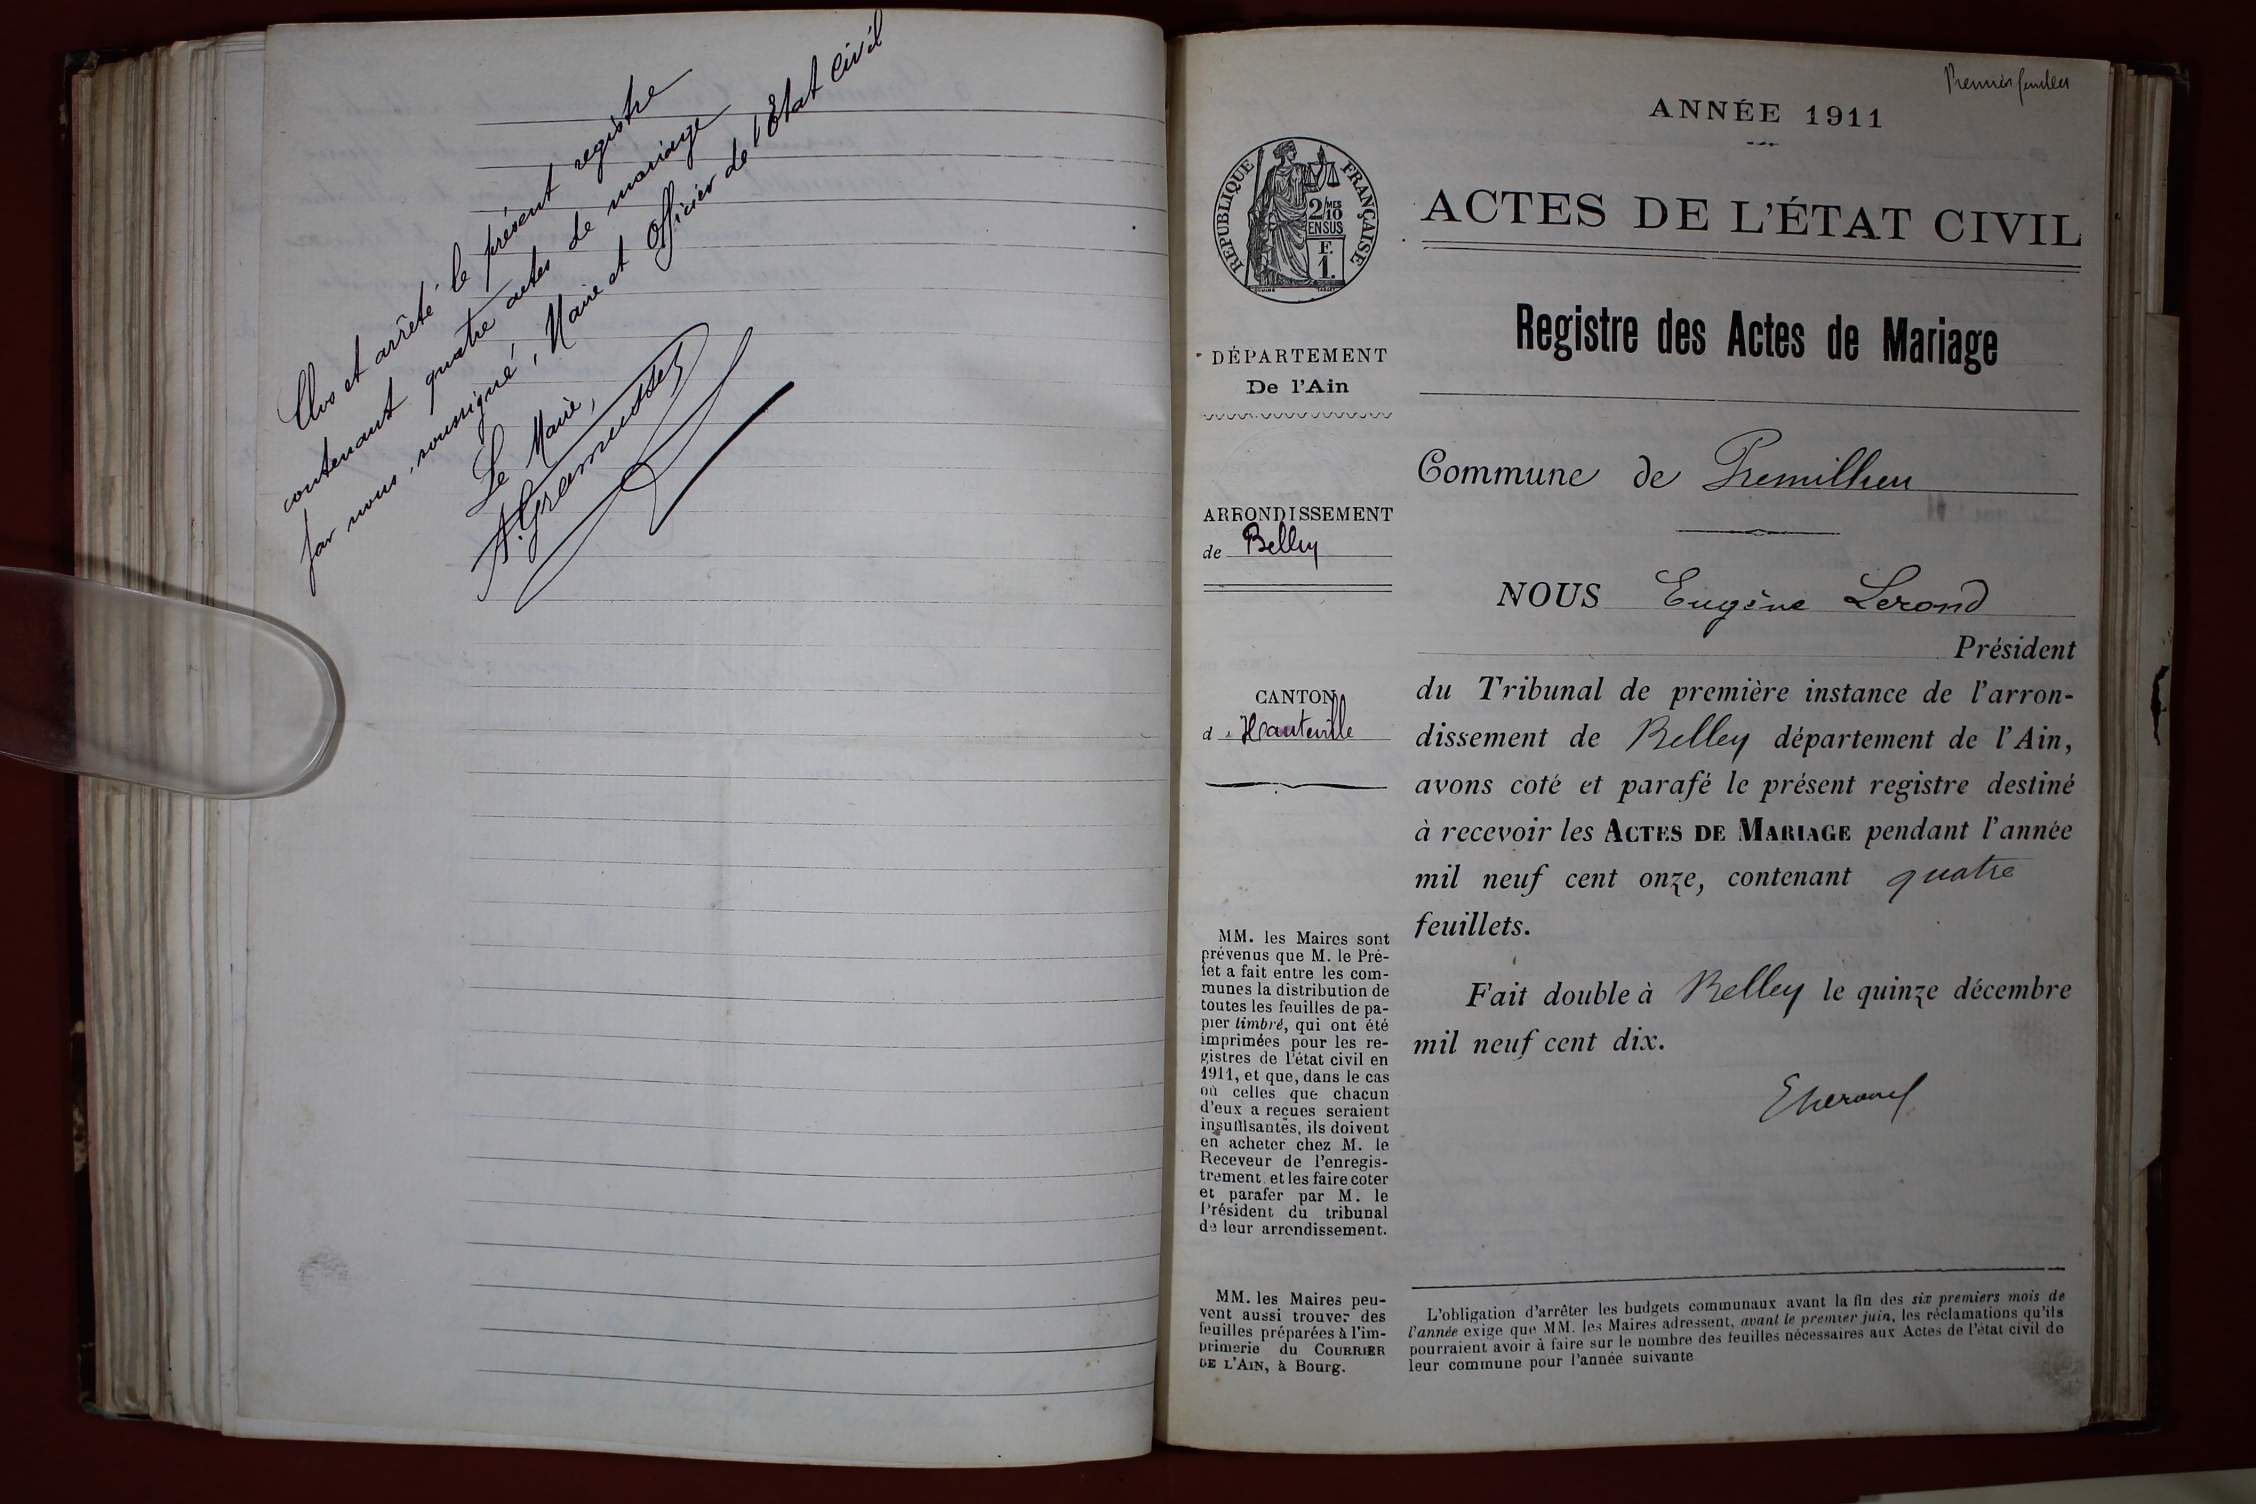 Clos et arrêté le présent registre
contenant quatre actes de mariage
par nous, soussigné, Maire et Officier de l'Etat Civil
Le Maire,
Premier feuillet
ANNÉE 1911
RÉPUBLIQUE FRANÇAISE
2/10 MES
EN SUS
F.
1.
ACTES DE L'ÉTAT CIVIL
Registre des Actes de Mariage
DÉPARTEMENT
De l'Ain
Commune de Premillieu
ARRONDISSEMENT
de Belley
NOUS Eugène Lerond
Président
CANTON
d Hauteville
du Tribunal de première instance de l'arron-
dissement de Belley département de l'Ain,
avons coté et parafé le présent registre destiné
à recevoir les ACTES DE MARIAGE pendant l'année
mil neuf cent onze, contenant quatre
feuillets.
Fait double à Belley le quinze décembre
mil neuf cent dix.
MM. les Maires sont
prévenus que M. le Pré-
fet a fait entre les com-
munes la distribution de
toutes les feuilles de pa-
pier timbré, qui ont été
imprimées pour les re-
gistres de l'état civil en
1911, et que, dans le cas
où celles que chacun
d'eux a reçues seraient
insuffisantes, ils doivent
en acheter chez M. le
Receveur de l'enregis-
trement et les faire coter
et parafer par M. le
Président du tribunal
de leur arrondissement.
MM. les Maires peu-
vent aussi trouver des
feuilles préparées à l'im-
primerie du COURRIER
DE L'AIN, à Bourg.
L'obligation d'arrêter les budgets communaux avant la fin des six premiers mois de
l'année exige que MM. les Maires adressent, avant le premier juin, les réclamations qu'ils
pourraient avoir à faire sur le nombre des feuilles nécessaires aux Actes de l'état civil de
leur commune pour l'année suivante